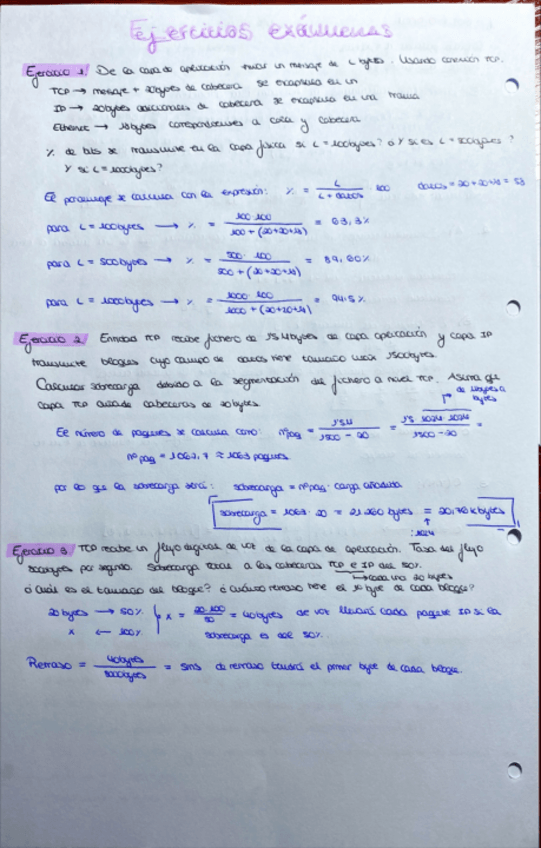 Ejercicios exámenes
Ejercicio 1 De la capa de aplicación enviar un mensaje de L bytes. Usando conexión TCP.
TCP → mensaje + 20 bytes de cabecera se encapsula en un
IP → 20 bytes adicionales de cabecera se encapsula en una trama
Ethernet → 18 bytes correspondientes a cola y cabecera
% de bits se transmite en la capa física si L = 100 bytes? ó Y si es L = 500 bytes?
Y si L = 1000 bytes?
El porcentaje se calcula con la expresión: % = L / L + datos · 100 datos = 20 + 20 + 18 = 58
para L = 100 bytes → % = 100 · 100 / 100 + (20+20+18) = 63,3%
para L = 500 bytes → % = 500 · 100 / 500 + (20+20+18) = 89,60%
para L = 1000 bytes → % = 1000 · 100 / 1000 + (20+20+18) = 94.5%
Ejercicio 2 Entidad TCP recibe fichero de 1'5 Mbytes de capa aplicación y capa IP
transmite bloques cuyo campo de datos tiene tamaño 1500 bytes.
Calcular sobrecarga debido a la segmentación del fichero a nivel TCP. Asuma que
capa TCP añade cabeceras de 20 bytes.
de Mbytes a bytes
El número de paquetes se calcula como: nºpaq = 1'5M / 1500 - 20 = 1'5 · 1024 · 1024 / 1500 - 20 =
nº paq = 1062,7 ≈ 1063 paquetes
por lo que la sobrecarga será: sobrecarga = nº paq · carga añadida
sobrecarga = 1063 · 20 = 21.260 bytes = 20,76 kbytes
: 1024
Ejercicio 3 TCP recibe un flujo digital de voz de la capa de aplicación. Tasa del flujo
8000 bytes por segundo. Sobrecarga total a las cabeceras TCP e IP del 50%.
→ cada una 20 bytes
ó Cuál es el tamaño del bloque? ó cuánto retraso tiene el 1º byte de cada bloque?
20 bytes → 50% x = 20 · 100 / 50 = 40 bytes de voz llevará cada paquete IP si la
x ← 100% sobrecarga es del 50%.
Retraso = 40 bytes / 8000 bytes = 5ms de retraso tendrá el primer byte de cada bloque.